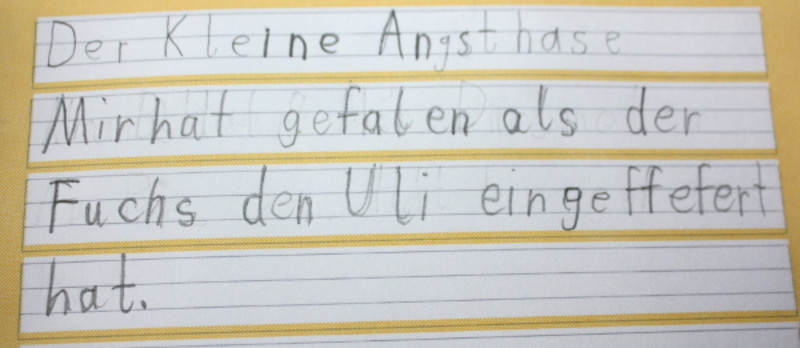 Der Kleine Angsthase
Mir hat gefalen als der
Fuchs den Uli eingeffefert
hat.